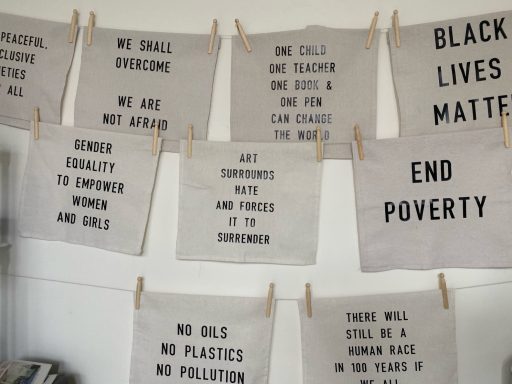 PEACEFUL,
CLUSIVE
IETIES
ALL
WE SHALL
OVERCOME
WE ARE
NOT AFRAID
ONE CHILD
ONE TEACHER
ONE BOOK &
ONE PEN
CAN CHANGE
THE WORLD
BLACK
LIVES
MATTE
GENDER
EQUALITY
TO EMPOWER
WOMEN
AND GIRLS
ART
SURROUNDS
HATE
AND FORCES
IT TO
SURRENDER
END
POVERTY
NO OILS
NO PLASTICS
NO POLLUTION
THERE WILL
STILL BE A
HUMAN RACE
IN 100 YEARS IF
WE ALL